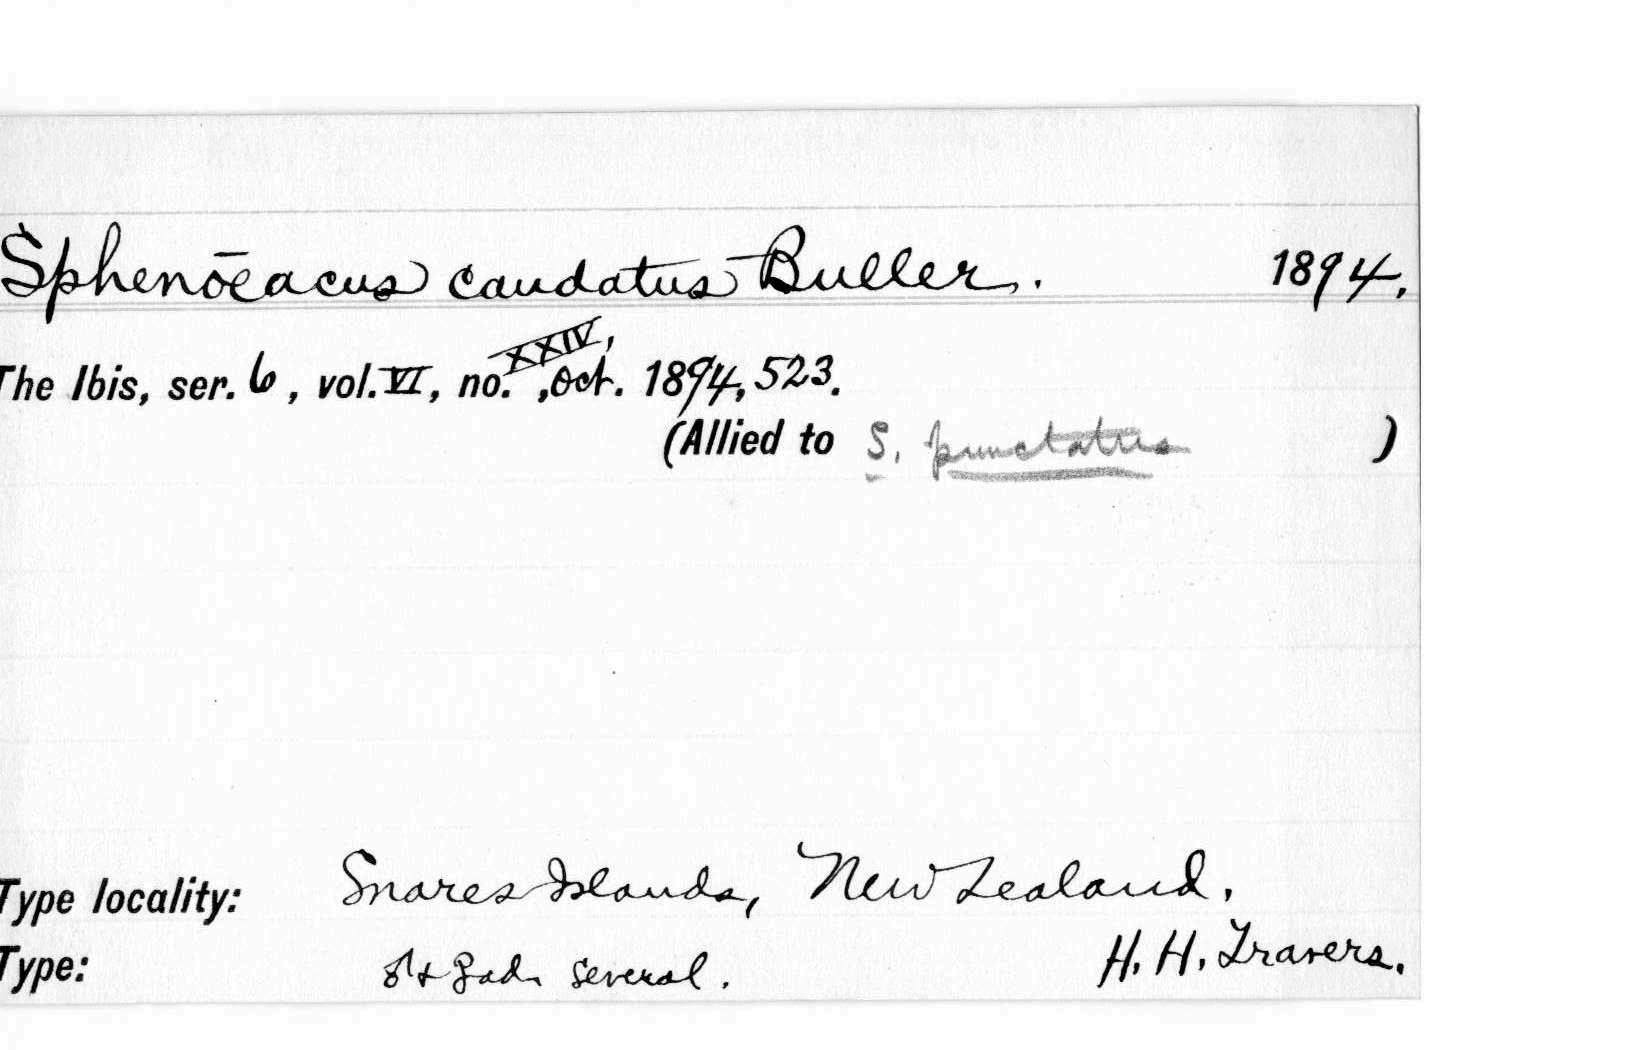 Sphenōeacus caudatus Buller. 1894.
The Ibis, ser. 6, vol. VI, no. XXIV, , Oct. 1894, 523.
(Allied to S. punctatus )
Type locality: Snares Islands, New Zealand.
Type: ♂ + ♀ ad. several. H. H. Travers.